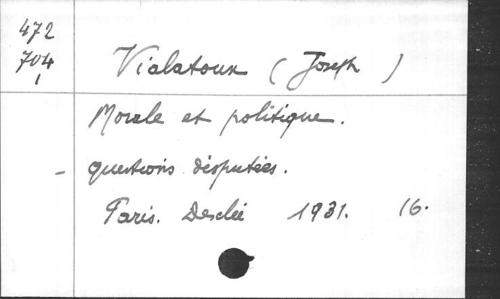 472
704
1
Vialatoux (Joseph)
Morale et politique.
- questions disputées.
Paris. Desclée 1931. 16.